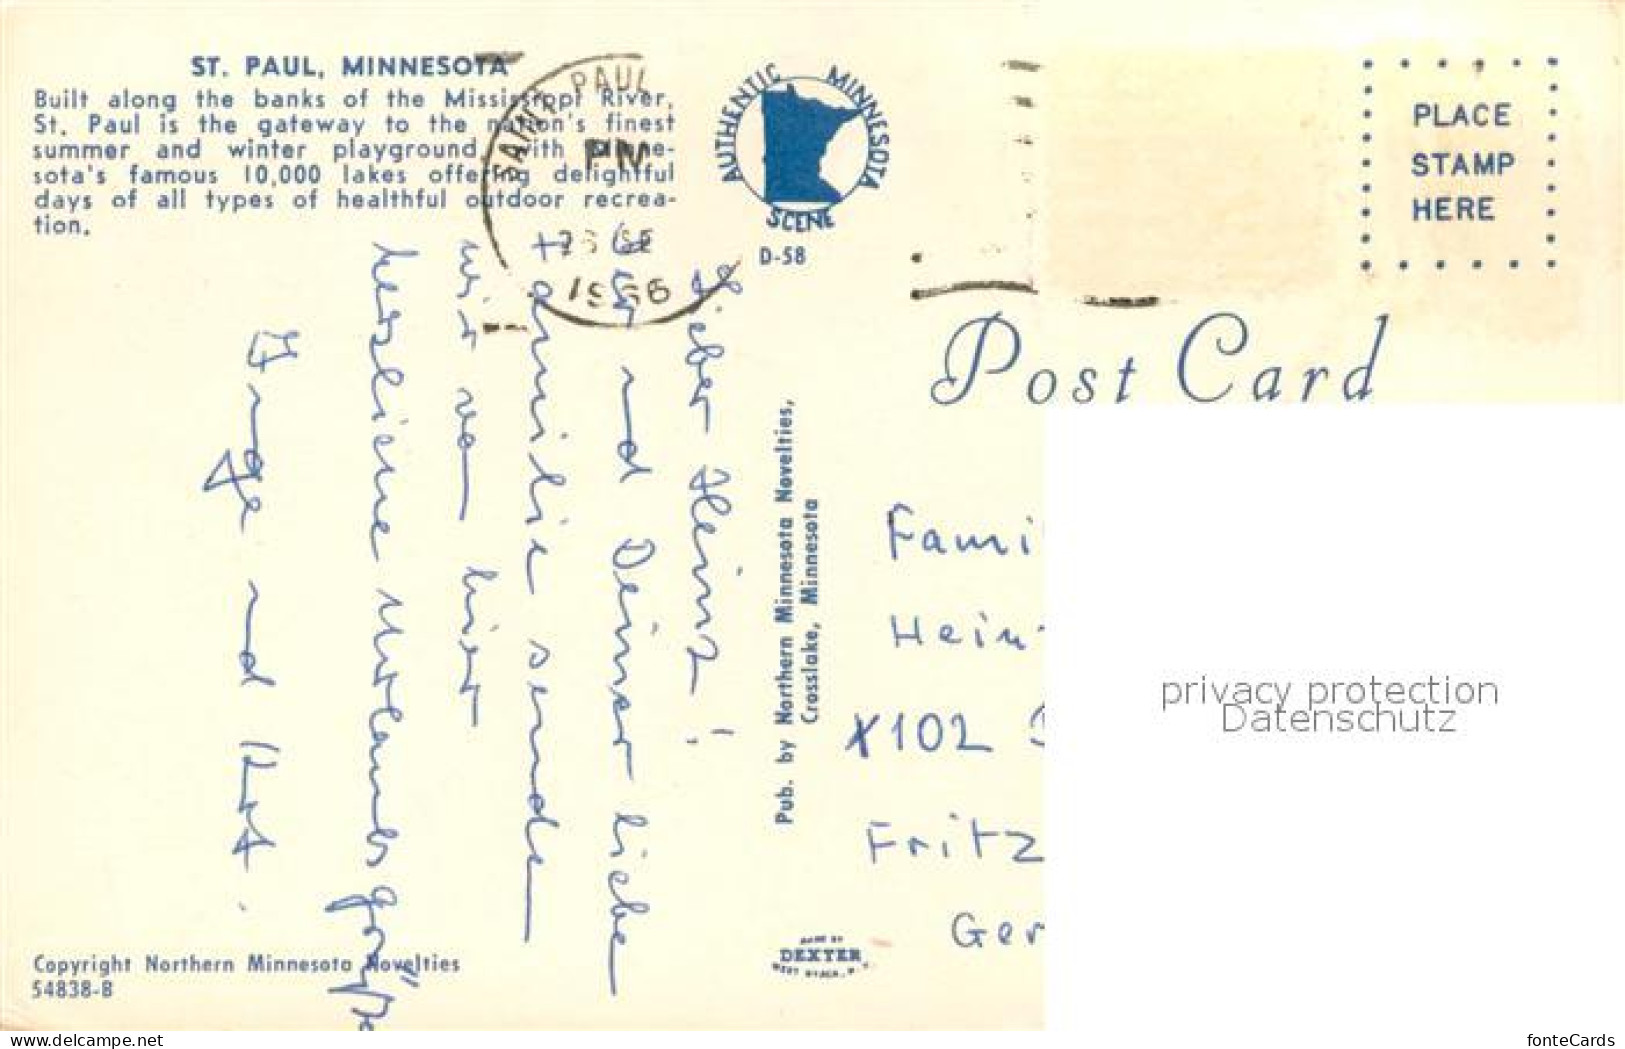 ST. PAUL, MINNESOTA
Built along the banks of the Mississippi River,
St. Paul is the gateway to the nation's finest
summer and winter playground, with Minne-
sota's famous 10,000 lakes offering delightful
days of all types of healthful outdoor recrea-
tion.
SAINT PAUL
PM
1966
AUTHENTIC MINNESOTA
SCENE
D-58
PLACE
STAMP
HERE
Post Card
Lieber Heinz!
Dir und Deiner lieben
Familie senden
wir von hier
herzliche Urlaubsgrüße
Inge und Kurt.
Pub. by Northern Minnesota Novelties,
Crosslake, Minnesota
Fami
Hein
X102
Fritz
Ger
privacy protection
Datenschutz
MADE BY
DEXTER
WEST NYACK, N.Y.
Copyright Northern Minnesota Novelties
54838-B
www.delcampe.net
fonteCards